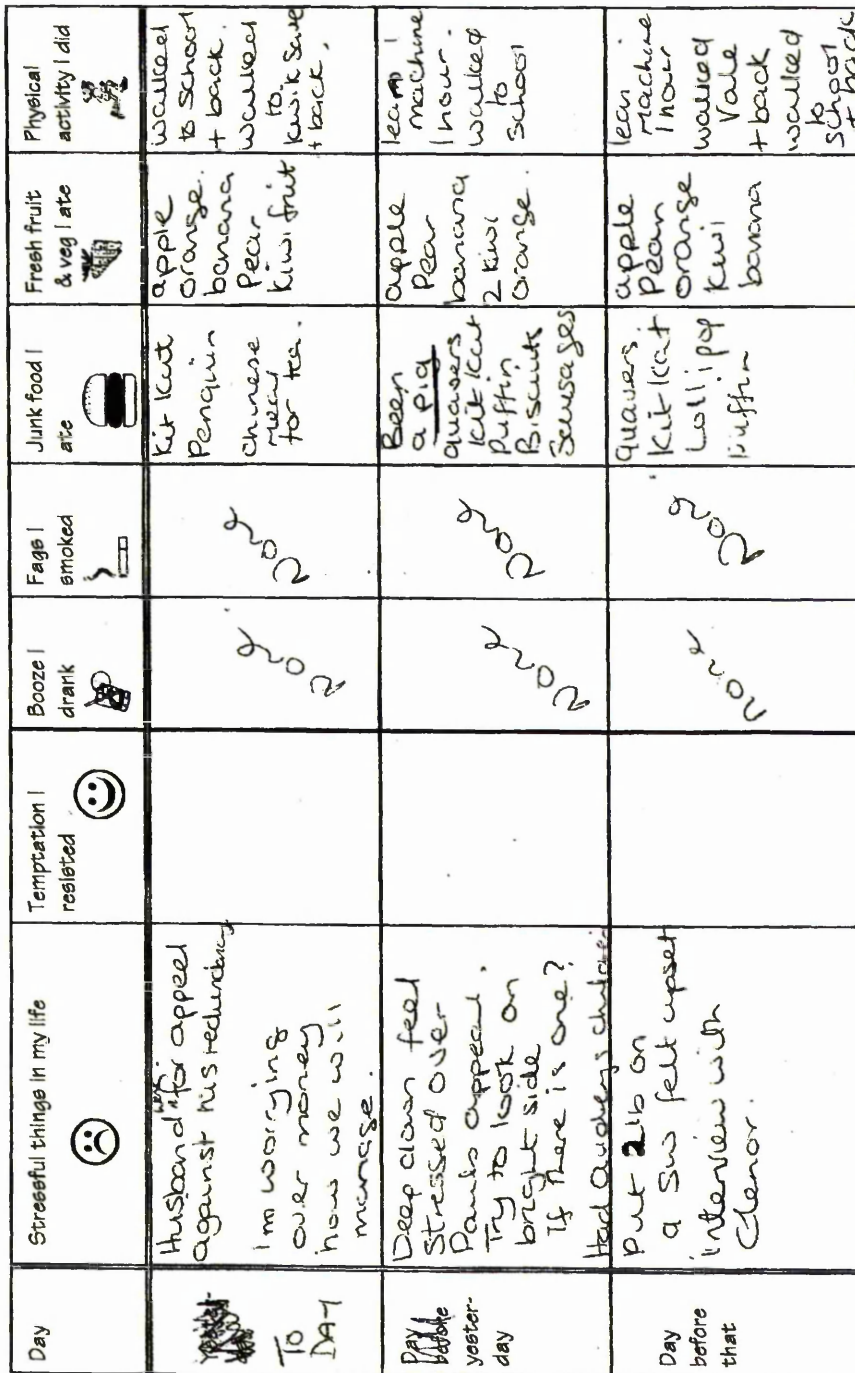 Day
Stressful things in my life
Temptation I
resisted
Booze I
drank
Fags I
smoked
Junk food I
ate
Fresh fruit
& veg I ate
Physical
activity I did
TO
DAY
Husband went for appeal
against his redundancy
I'm worrying
over money
how we will
manage.
None
None
Kit Kat
Penguin
Chinese
meal
for tea.
apple
orange.
banana
Pear
Kiwi fruit
walked
to school
+ back.
walked
to
Kwik Save
+ back.
Day
before
yester-
day
Deep down feel
stressed over
Pauls appeal.
Try to look on
bright side
If there is one?
Had Audreys
None
None
Been
a pig
quavers
Kit Kat
Puffin
Biscuits
Sausages
apple
Pear
banana
2 kiwi
orange.
lean
machine
1 hour.
walked
to
school
Day
before
that
Put 2lb on
a SW felt upset
interview with
none
None
quavers.
Kit Kat.
Lollipop
Puffin
apple
Pear
orange
Kiwi
banana
lean
machine
1 hour
walked
Vale
+ back
walked
to
school
+ back